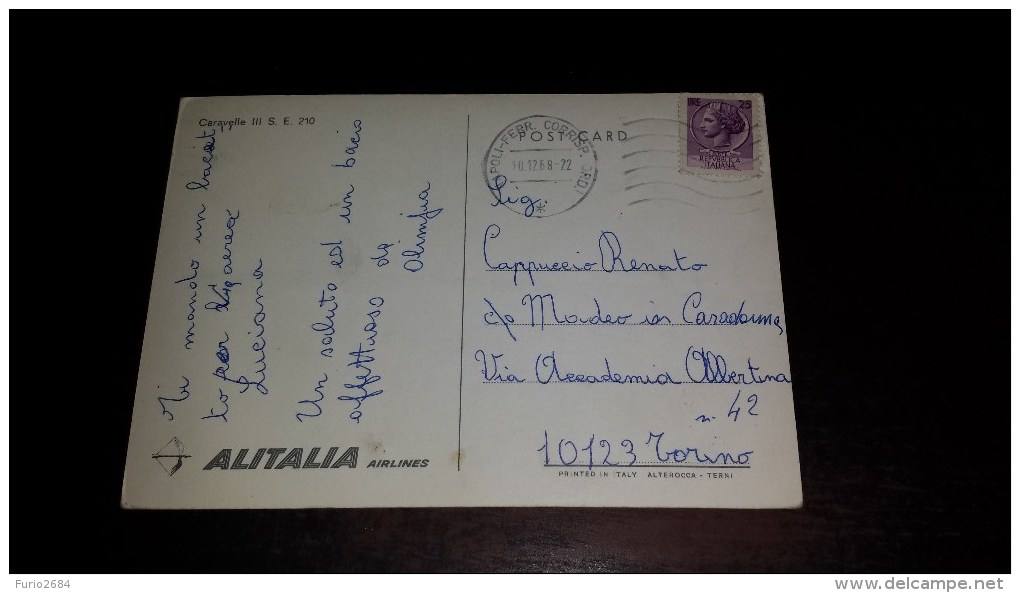 Caravelle III S. E. 210
Mi mando un bacet
to per via aerea
Luciana
Un saluto ed un bacio
affettuoso da
Olimpia
ALITALIA AIRLINES
POST CARD
NAPOLI-FERR. CORRISP. ORD.
10.12.68-22
LIRE 25
REPUBBLICA
ITALIANA
Sig.
Cappuccio Renato
c/o Madeo in
Via Accademia Albertina
n. 42
10123 Torino
PRINTED IN ITALY ALTEROCCA - TERNI
Furio2684
www.delcampe.net